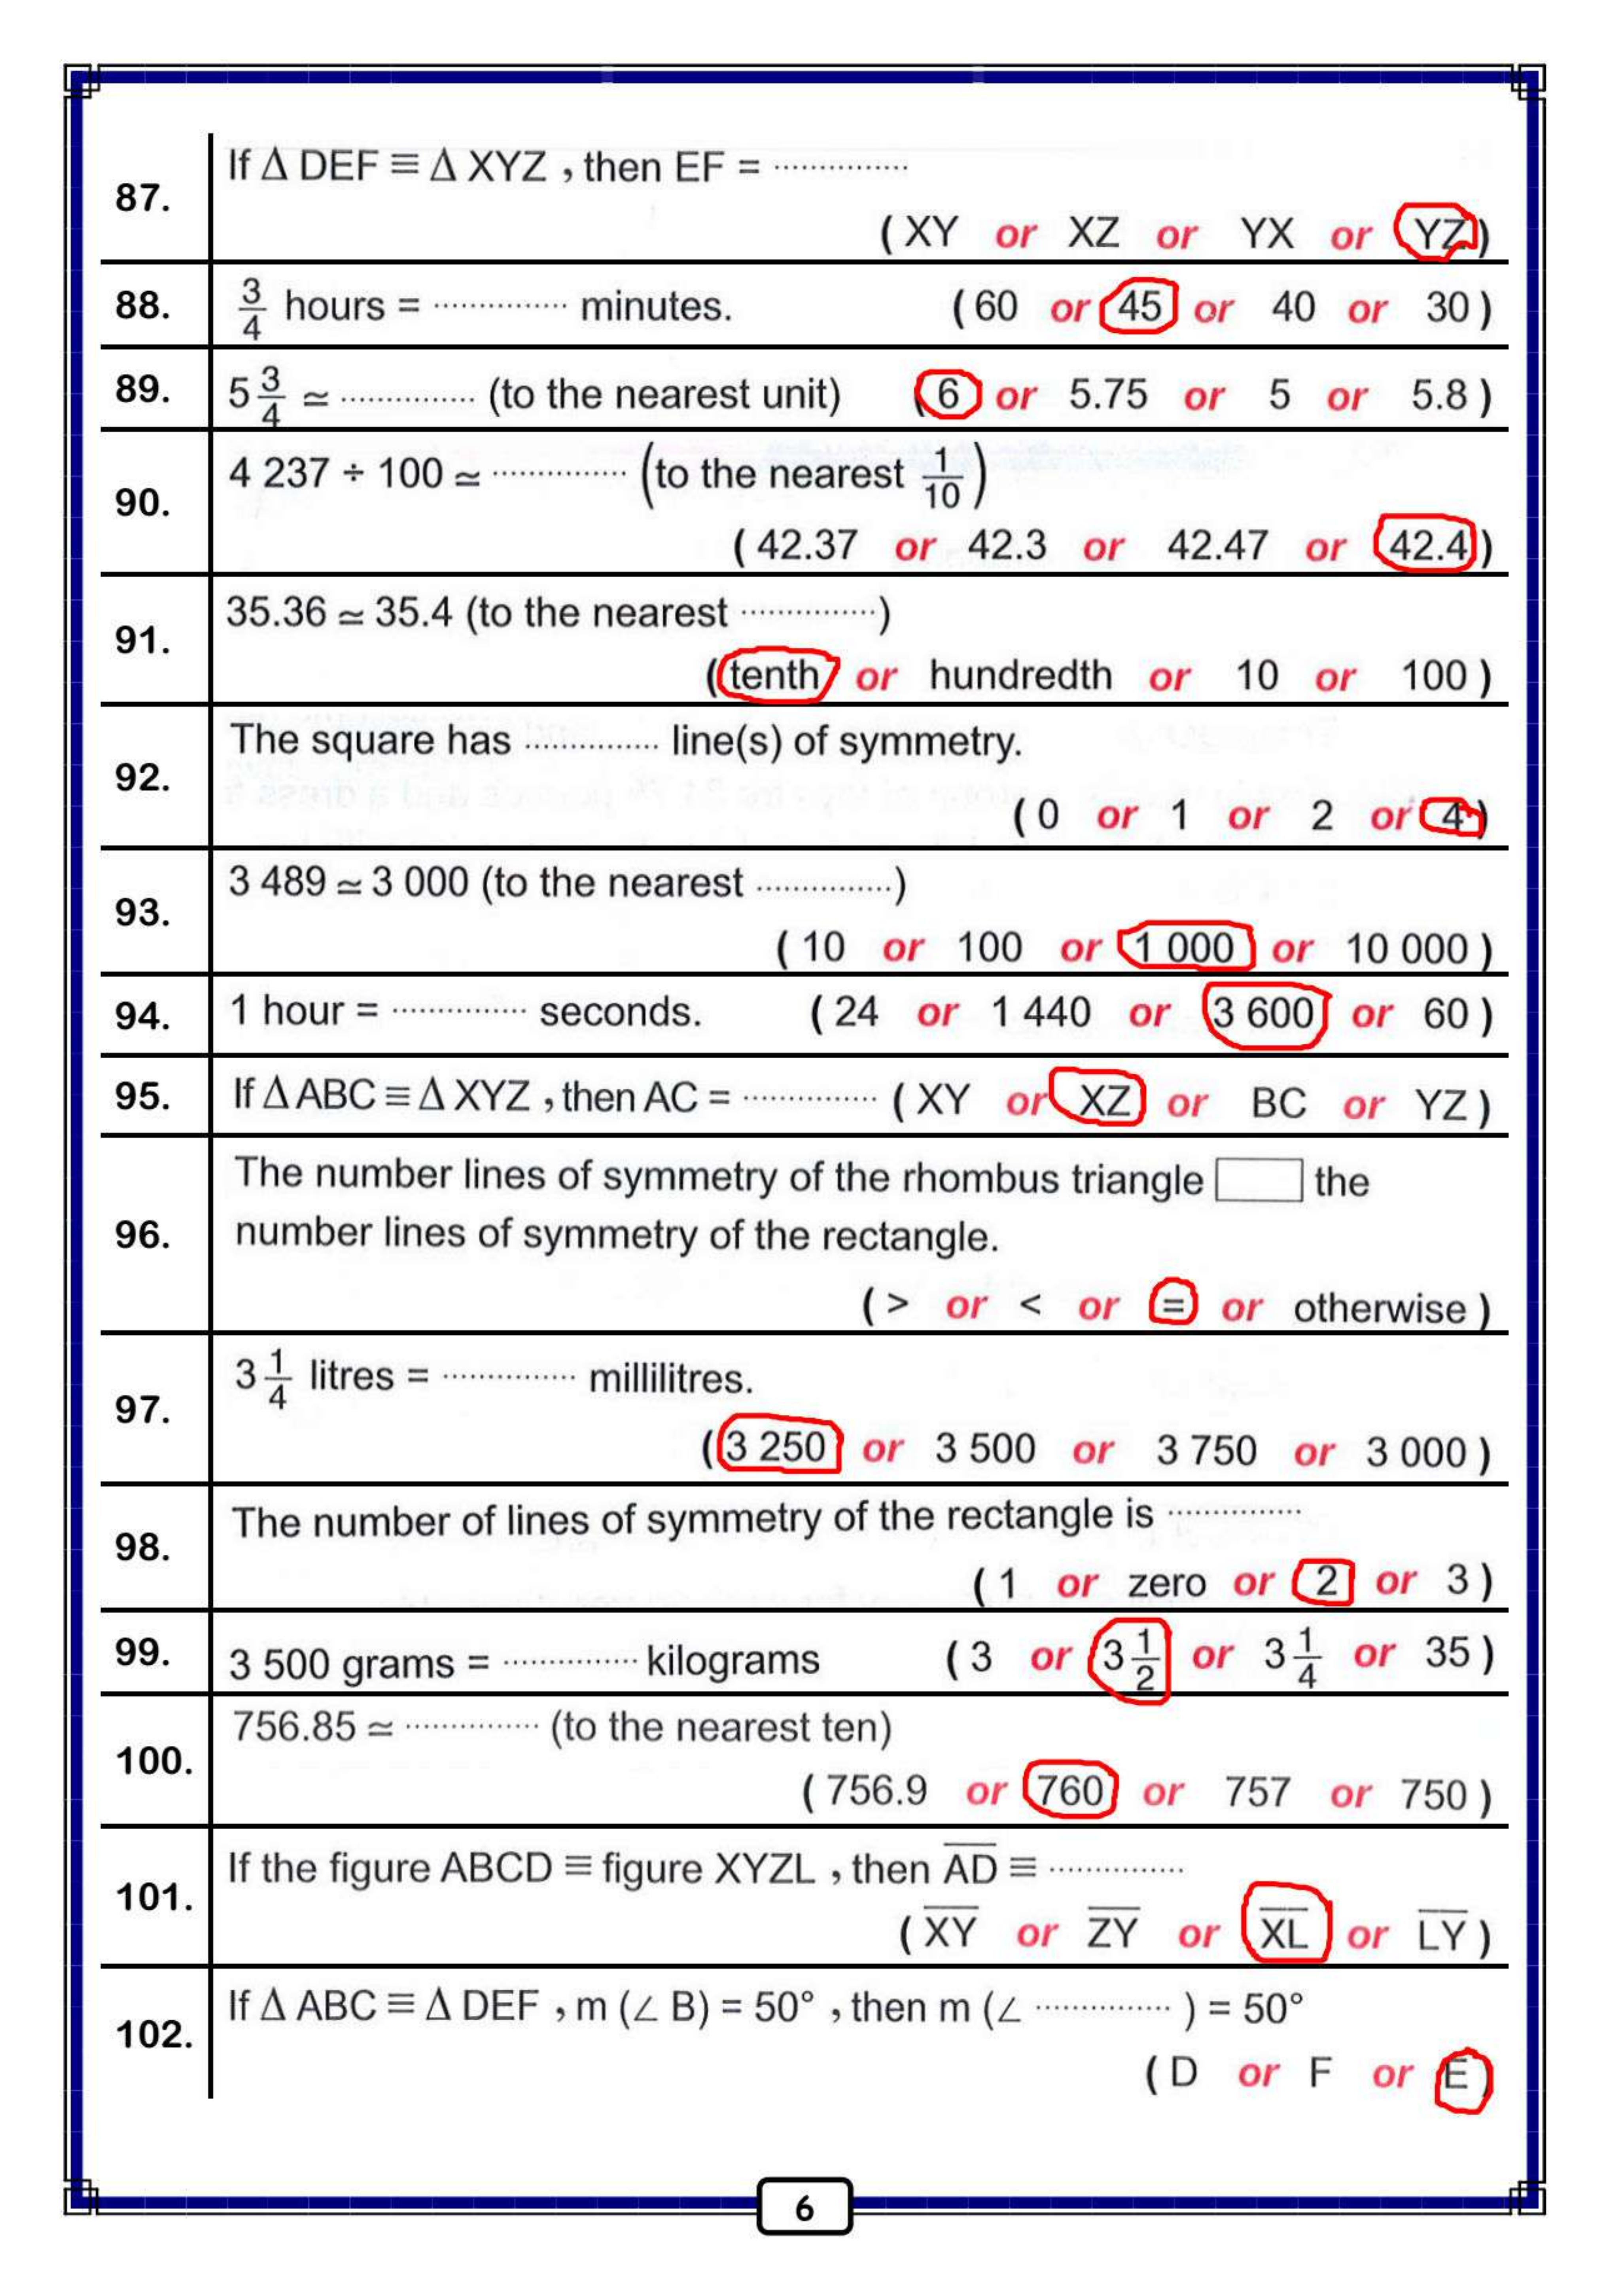 87.
If Δ DEF ≡ Δ XYZ , then EF = ...............
( XY or XZ or YX or YZ )
88.
3/4 hours = ............... minutes. ( 60 or 45 or 40 or 30 )
89.
5 3/4 ≃ ............... (to the nearest unit) ( 6 or 5.75 or 5 or 5.8 )
90.
4 237 ÷ 100 ≃ ............... (to the nearest 1/10)
( 42.37 or 42.3 or 42.47 or 42.4 )
91.
35.36 ≃ 35.4 (to the nearest ...............)
( tenth or hundredth or 10 or 100 )
92.
The square has ............... line(s) of symmetry.
( 0 or 1 or 2 or 4 )
93.
3 489 ≃ 3 000 (to the nearest ...............)
( 10 or 100 or 1 000 or 10 000 )
94.
1 hour = ............... seconds. ( 24 or 1 440 or 3 600 or 60 )
95.
If Δ ABC ≡ Δ XYZ , then AC = ............... ( XY or XZ or BC or YZ )
96.
The number lines of symmetry of the rhombus triangle □ the
number lines of symmetry of the rectangle.
( > or < or = or otherwise )
97.
3 1/4 litres = ............... millilitres.
( 3 250 or 3 500 or 3 750 or 3 000 )
98.
The number of lines of symmetry of the rectangle is ...............
( 1 or zero or 2 or 3 )
99.
3 500 grams = ............... kilograms ( 3 or 3 1/2 or 3 1/4 or 35 )
100.
756.85 ≃ ............... (to the nearest ten)
( 756.9 or 760 or 757 or 750 )
101.
If the figure ABCD ≡ figure XYZL , then A̅D̅ ≡ ...............
( X̅Y̅ or Z̅Y̅ or X̅L̅ or L̅Y̅ )
102.
If Δ ABC ≡ Δ DEF , m (∠ B) = 50° , then m (∠ ............... ) = 50°
( D or F or E )
6